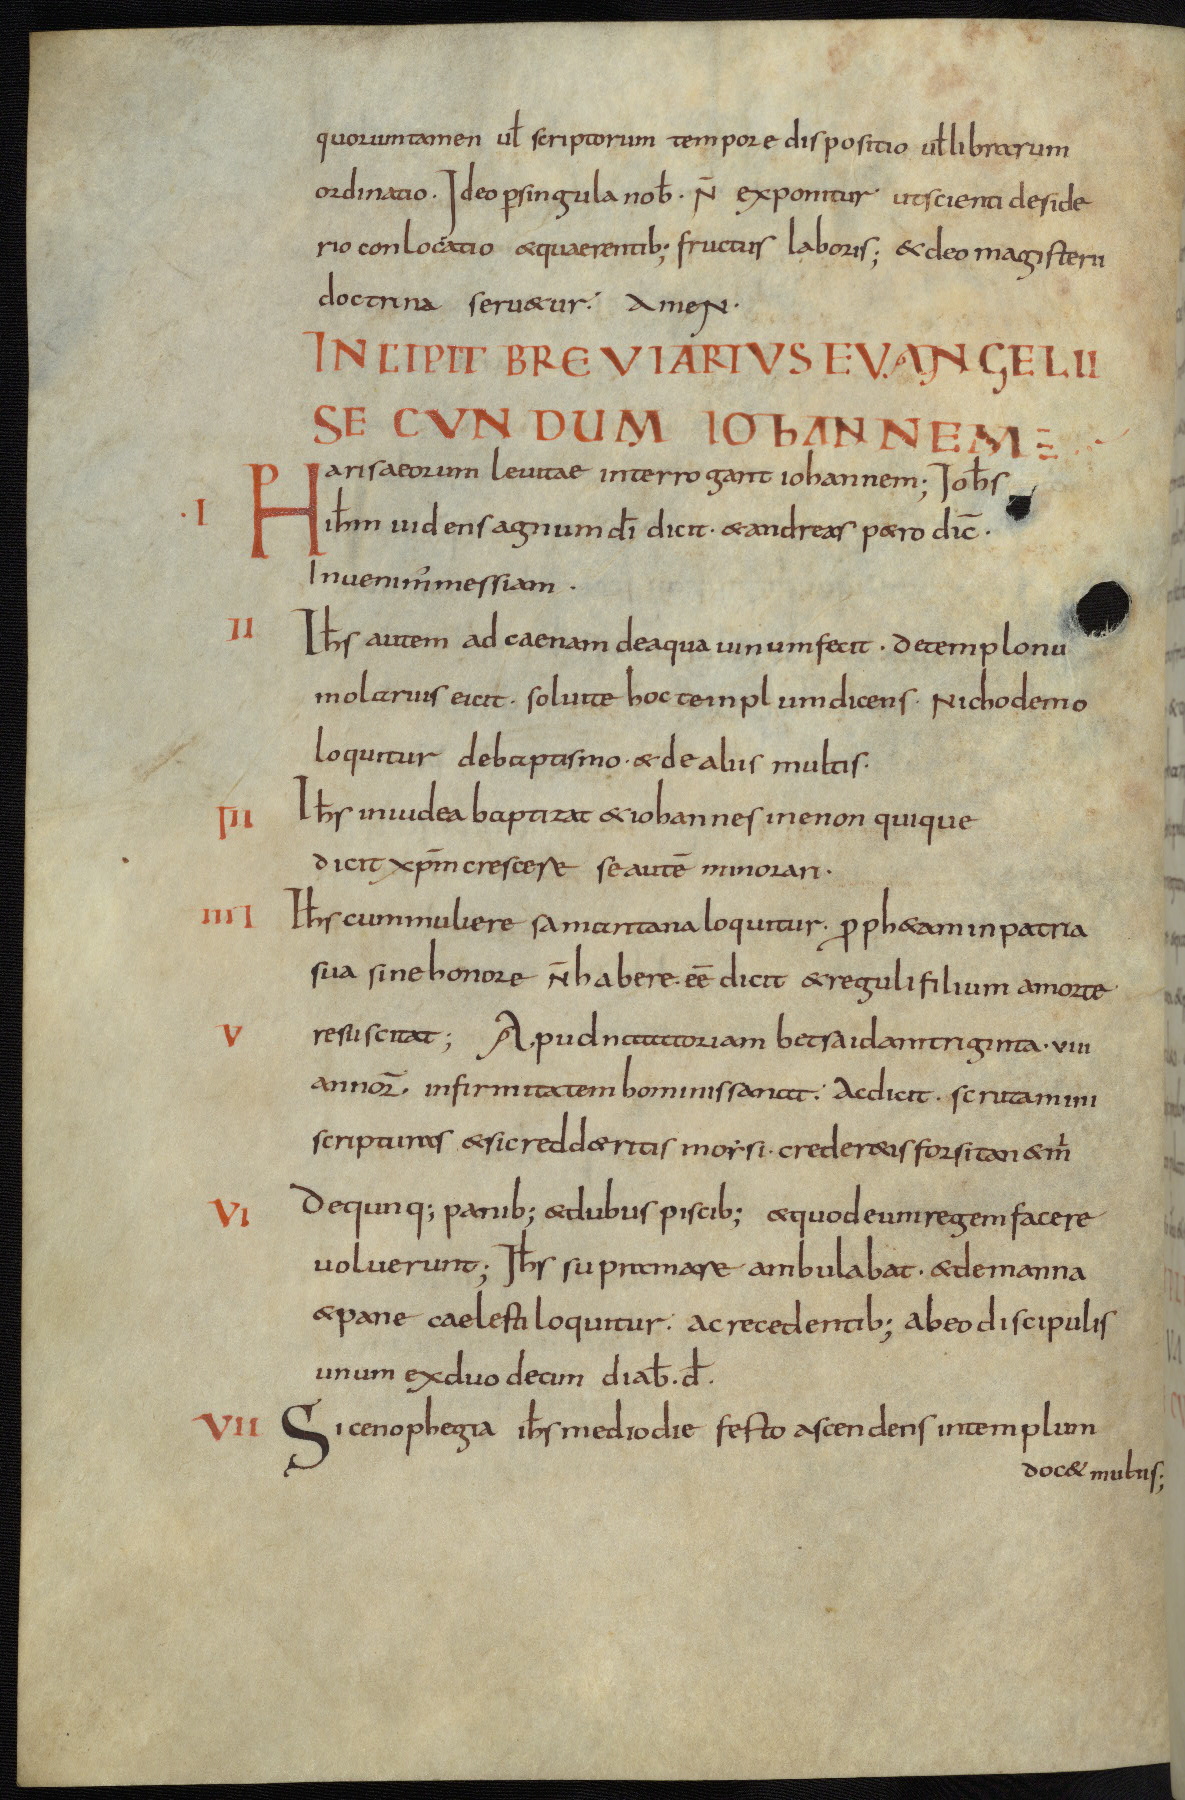 quorumtamen ul̄ scriptorum tempore dispositio ul̄ librarum
ordinatio. Ideo ꝑsingula nob̄. N̄ exponitur utscienti deside
rio conlocatio &quaerentib; fructus laboris; &deo magisterii
doctrina seru&ur. AmeN.
INCIPIT BREVIARIVS EVANGELII
SECVNDUM IOhANNEM
I PHarisaeorum leuitae interrogant iohannem; Ioh̄s
ih̄m uidens agnum dī dicit. &andreas p&ro dic̄.
Inuenim̄messiam.
II Ih̄s autem ad caenam deaqua uinumfecit. detemplonu
molarius eicit. soluite hoc templum dicens. Nichodemo
loquitur debaptismo. &de aliis multis.
III Ih̄s iniudea baptizat &iohannes inenon quique
dicit xp̄m crescere se autē minorari.
IIII Ih̄s cummuliere samaritana loquitur. ꝓph&am inpatria
sua sine honore n̄ habere. eē dicit &reguli filium amorte
V resuscitat; Apudnatatoriam betsaidamtriginta. viii
annor̄. infirmitatem hominis sanat. Acdicit. scrutamini
scripturas &sicredd&ritis morsi. creder&is forsitan &m̄
VI Dequinq; panib; &dubus piscib; &quodeumregem facere
uoluerunt; Ih̄s supramare ambulabat. &demanna
&pane caelesti loquitur. ac recedentib; abeo discipulis
unum exduodecim diab̄. d̄.
VII Sicenophegia ih̄s mediodie festo ascendens intemplum
doc& multis;